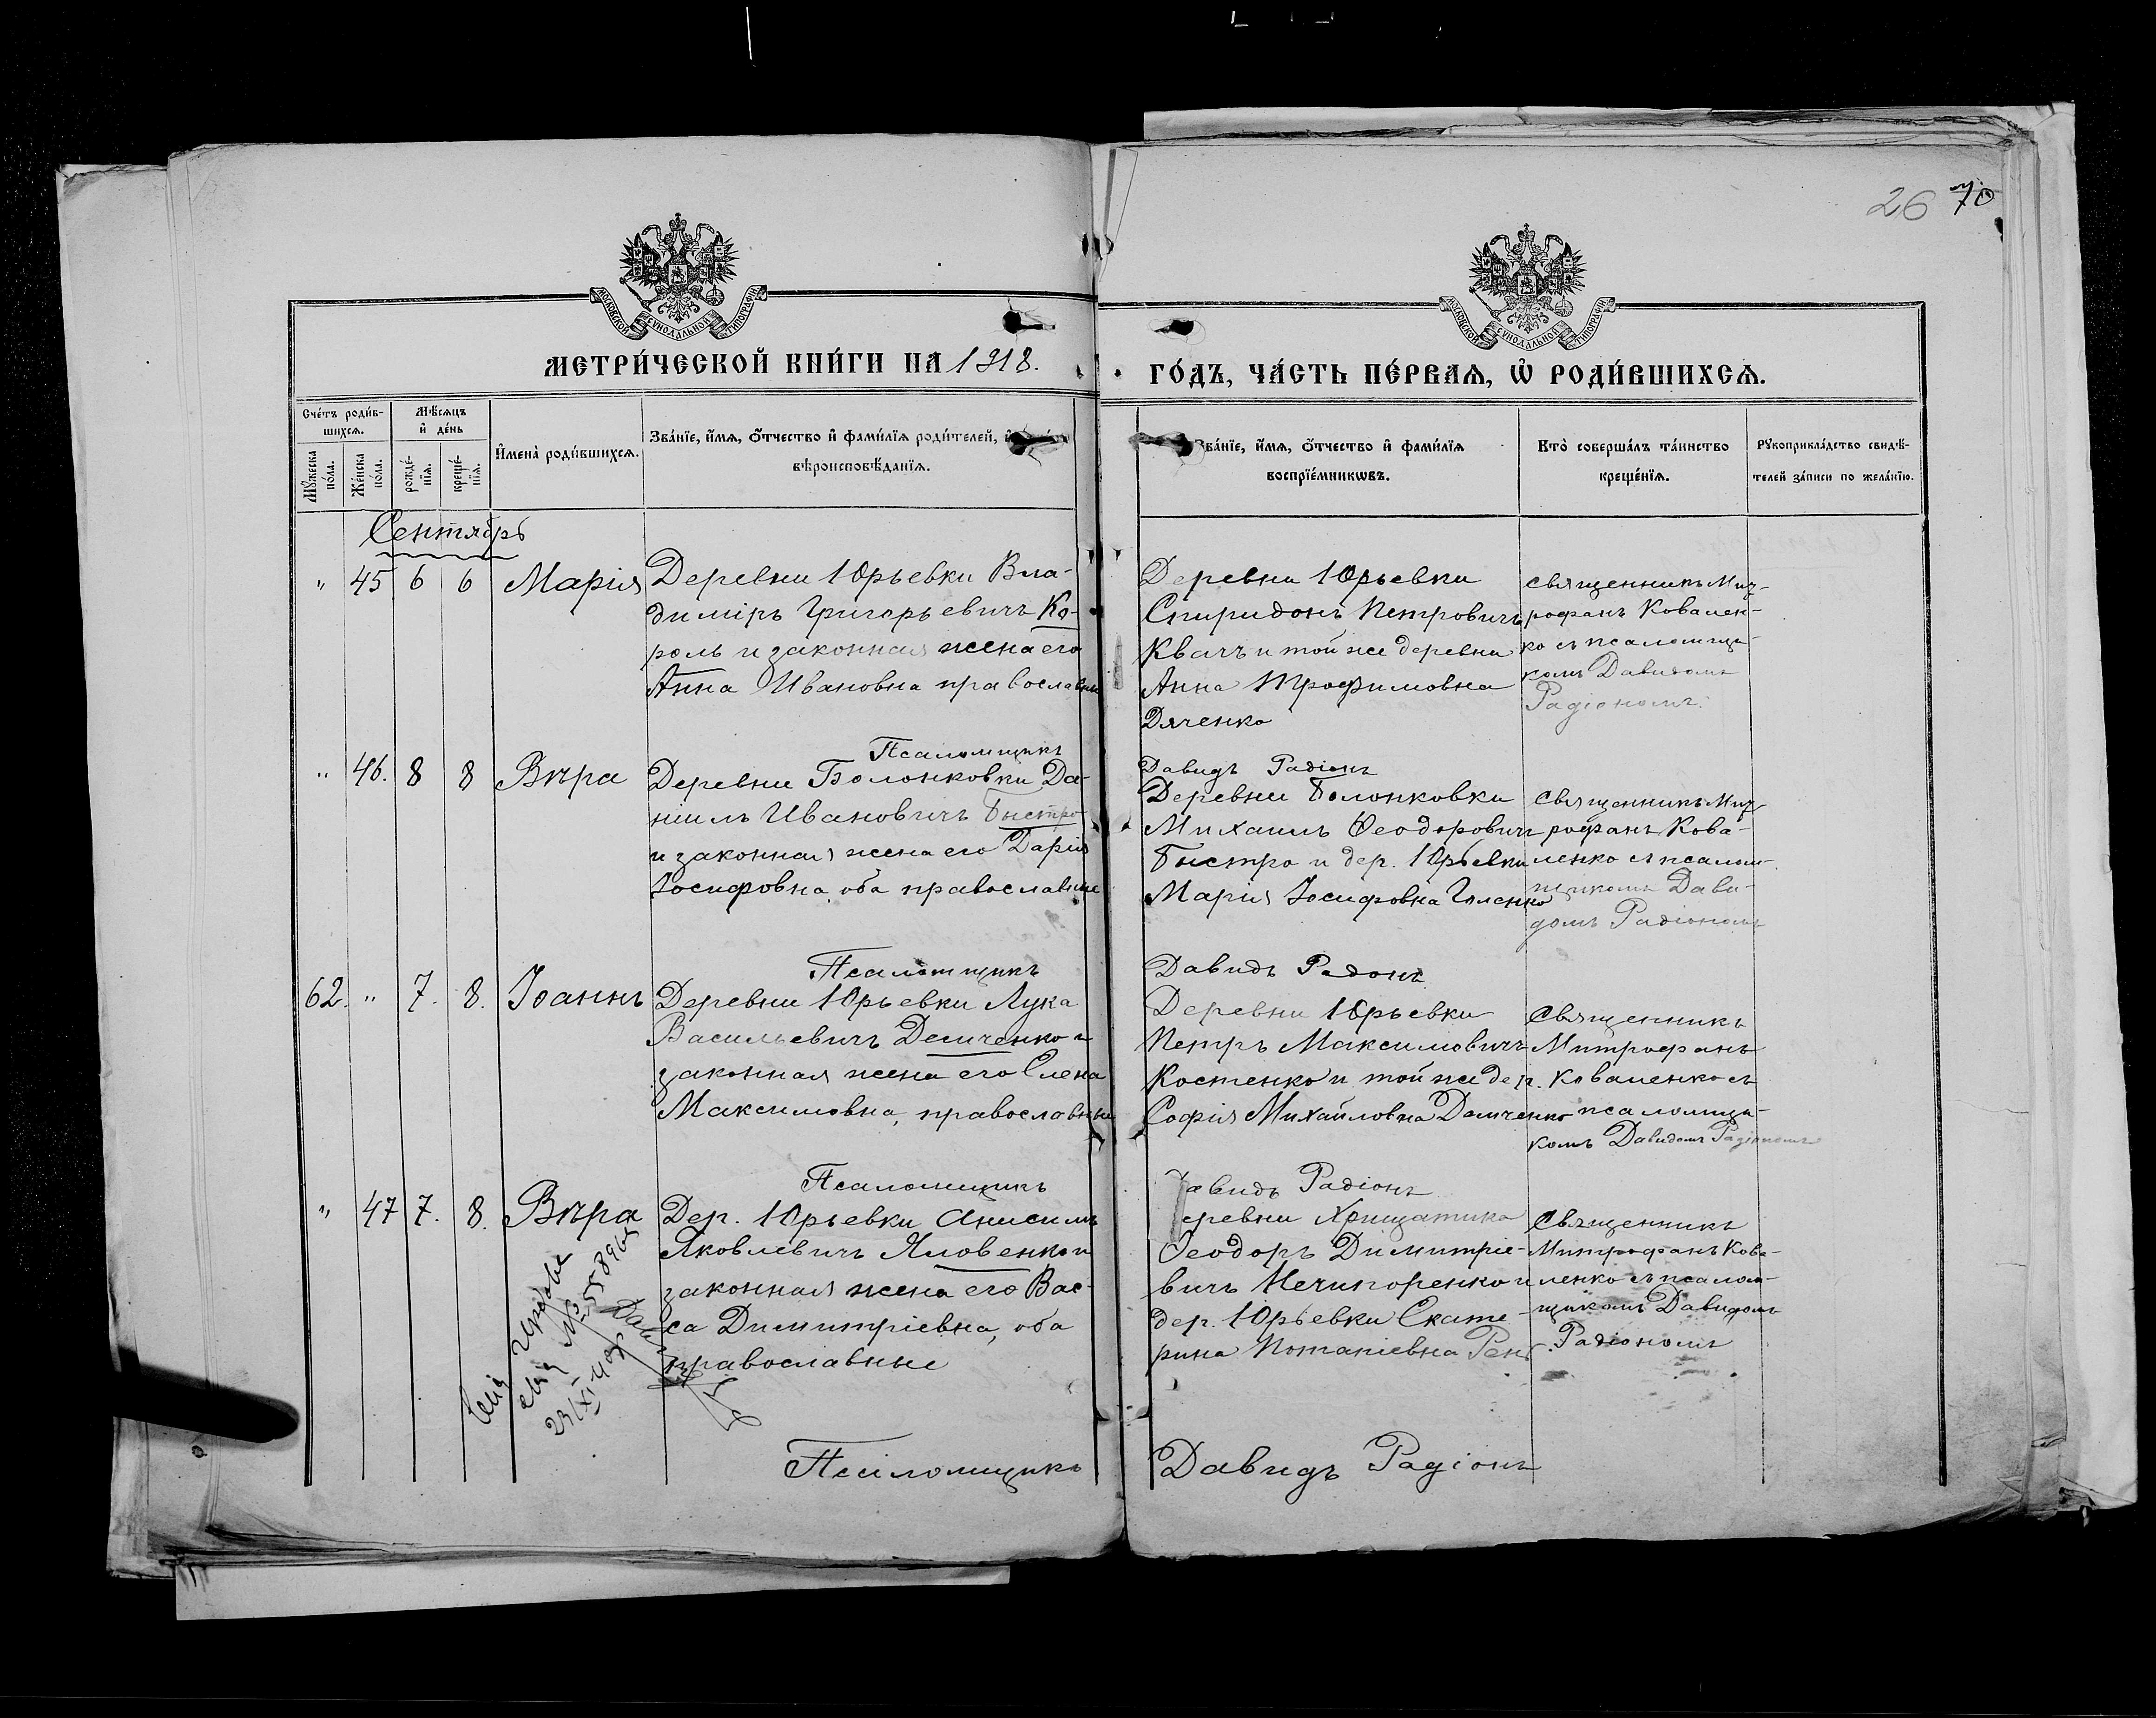 26 70
МОСКОВСКОЙ СѴНОДАЛЬНОЙ ТИПОГРАФІИ
МОСКОВСКОЙ СѴНОДАЛЬНОЙ ТИПОГРАФІИ
МЕТРИ́ЧЕСКОЙ КНИ́ГИ НА 1918.
ГО́ДЪ, ЧА́СТЬ ПЕ́РВАѦ, Ѽ РОДИ́ВШИХСѦ.
Сче́тъ роди́в-
шихсѧ.
Мꙋ́жеска по́ла.
Же́нска по́ла.
Мѣ́сѧцъ
и҆ де́нь
рожде́-
нїѧ.
креще́-
нїѧ.
И҆мена̀ роди́вшихсѧ.
Зва́нїе, и҆́мѧ, ѻ҆́тчество и҆ фами́лїѧ роди́телей,
вѣроисповѣ́данїѧ.
Зва́нїе, и҆́мѧ, ѻ҆́тчество и҆ фами́лїѧ
воспрїе́мникѡвъ.
Кто̀ соверша́лъ та́инство
креще́нїѧ.
Рꙋкоприкла́дство свидѣ́-
телей за́писи по жела́нїю.
Сентябрь
" 45 6 6 Марія
Деревни Юрьевки Вла-
димірь Григорьевичъ Ко-
роль и законная жена его
Анна Ивановна православные
Деревни Юрьевки
Спиридонъ Петровичъ
Квачъ и той же деревни
Анна Трофимовна
Дяченко
Священникъ Мит-
рофанъ Ковален-
ко съ псаломщи-
комъ Давидомъ
Радіономъ.
Псаломщикъ
Давидъ Радіонъ
" 46. 8 8 Вѣра
Деревни Болонковки Да-
ніилъ Ивановичъ Быстро
и законная жена его Дарія
Іосифовна, оба православные
Деревни Болонковки
Михаилъ Ѳеодоровичъ
Быстро и дер. Юрьевки
Марія Іосифовна
Священникъ Мит-
рофанъ Кова-
ленко съ псалом-
щикомъ Дави-
домъ Радіономъ
Псаломщикъ
Давидъ Радіонъ
62. " 7. 8. Іоаннъ
Деревни Юрьевки Лука
Васильевичъ Демченко и
законная жена его Елена
Максимовна, православные
Деревни Юрьевки
Петръ Максимовичъ
Костенко и той же дер.
Софія Михайловна Демченко
Священникъ
Митрофанъ
Коваленко съ
псаломщи-
комъ Давидомъ Радіономъ
Псаломщикъ
Давидъ Радіонъ
" 47 7. 8. Вѣра
Дер. Юрьевки Анисимъ
Яковлевичъ Яловенко и
законная жена его Вас-
са Димитріевна, оба
православные
Деревни Хрищатика
Ѳеодоръ Димитріе-
вичъ Нечипоренко и
дер. Юрьевки Екате-
рина Потапіевна
Священникъ
Митрофанъ Кова-
ленко съ псалом-
щикомъ Давидомъ
Радіономъ
№558965
Псаломщикъ
Давидъ Радіонъ